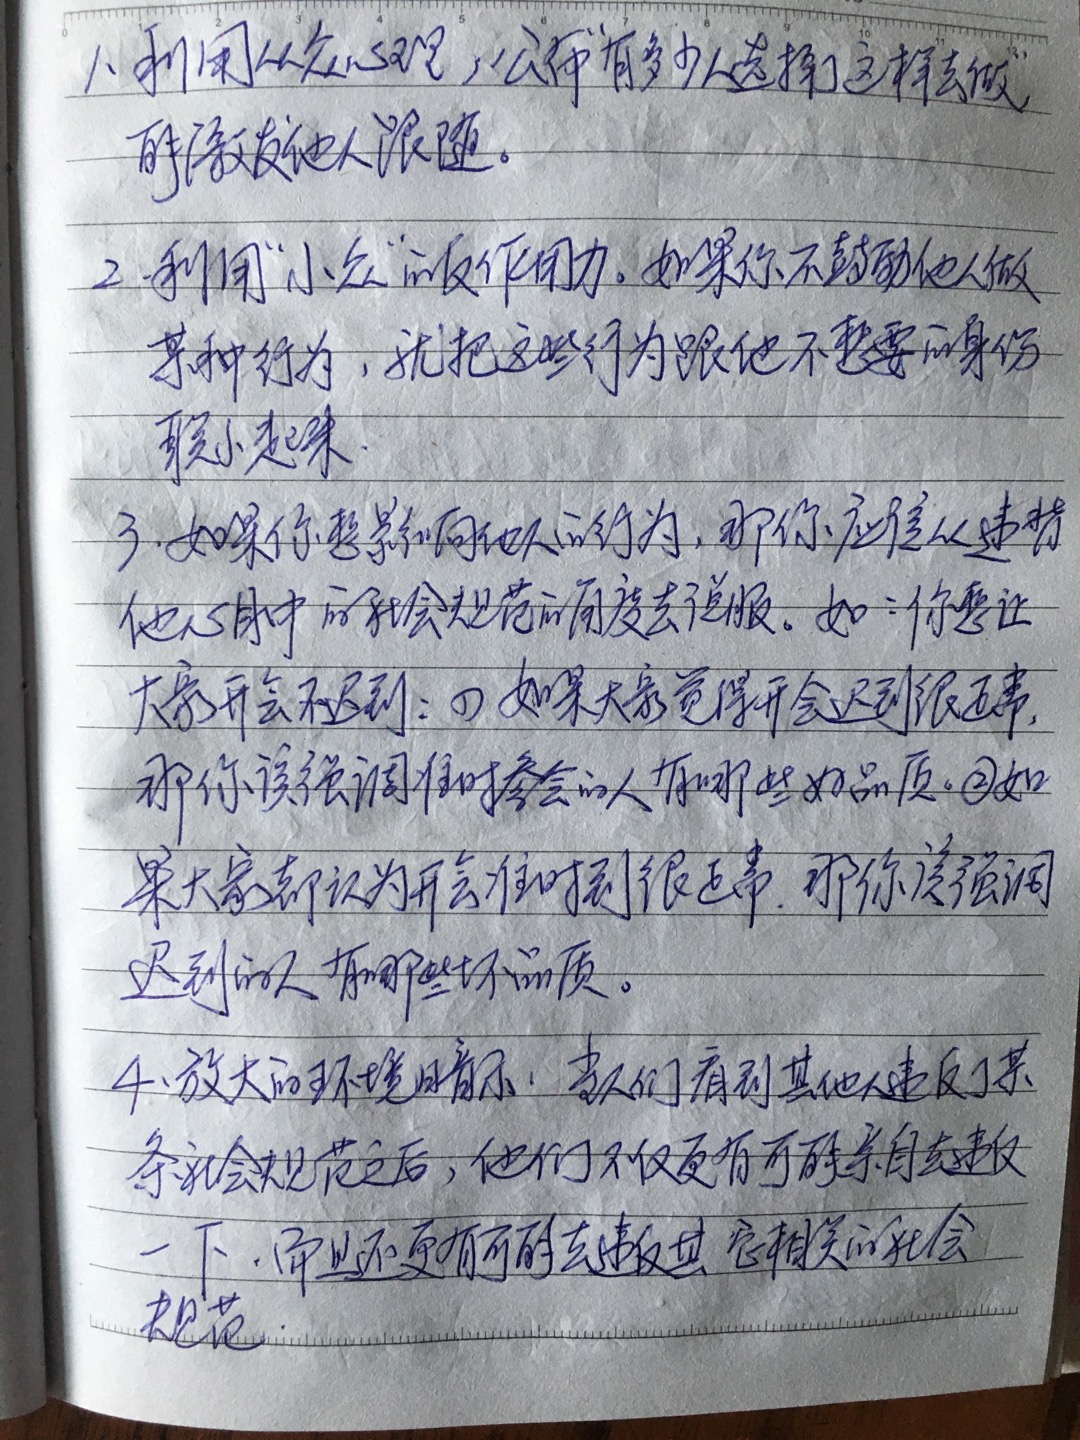 0 1 2 3 4 5 6 7 8 9 10 11 12
1、利用从众心理，公布"有多少人选择了这样去做"
能激发他人跟随。
2、利用"小众"的反作用力。如果你不鼓励他人做
某种行为，就把这些行为跟他不想要的身份
联系起来.
3、如果你想影响他人的行为，那你应该从违背
他心目中的社会规范的角度去说服。如：你想让
大家开会不迟到：① 如果大家觉得开会迟到很正常，
那你该强调准时参会的人有哪些好品质。②如
果大家都认为开会准时到很正常．那你该强调
迟到的人有哪些坏品质。
4、放大的环境暗示．当人们看到其他人违反了某
条社会规范之后，他们不仅更有可能亲自去违反
一下．而且还更有可能去违反其它相关的社会
规范.